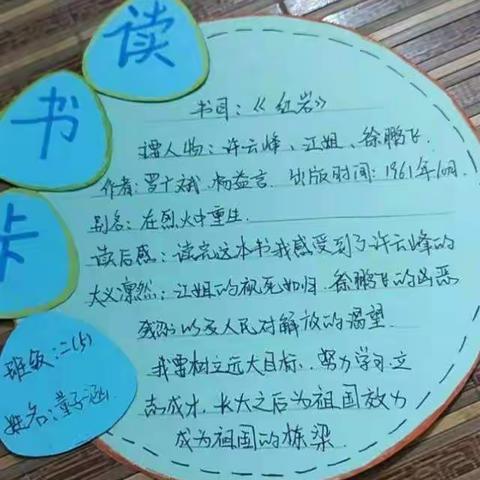 读
书
卡
书目：《红岩》
主要人物：许云峰、江姐、徐鹏飞.
作者：罗广斌、杨益言. 出版时间：1961年12月.
别名：在烈火中重生.
读后感：读完这本书我感受到了许云峰的
大义凛然；江姐的视死如归. 徐鹏飞的凶恶
残忍以及人民对解放的渴望.
我要树立远大目标，努力学习，立
志成才，长大之后为祖国效力
成为祖国的栋梁.
班级：二(5)
姓名：董子涵